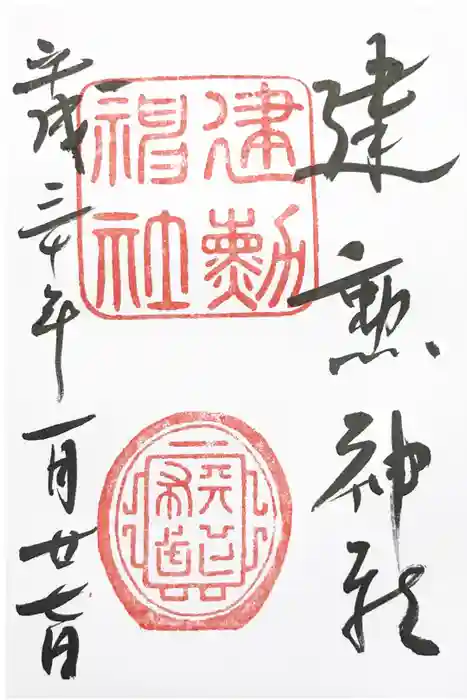 建勲神社
建勲
神社
天下
布武
平成三十年一月廿七日